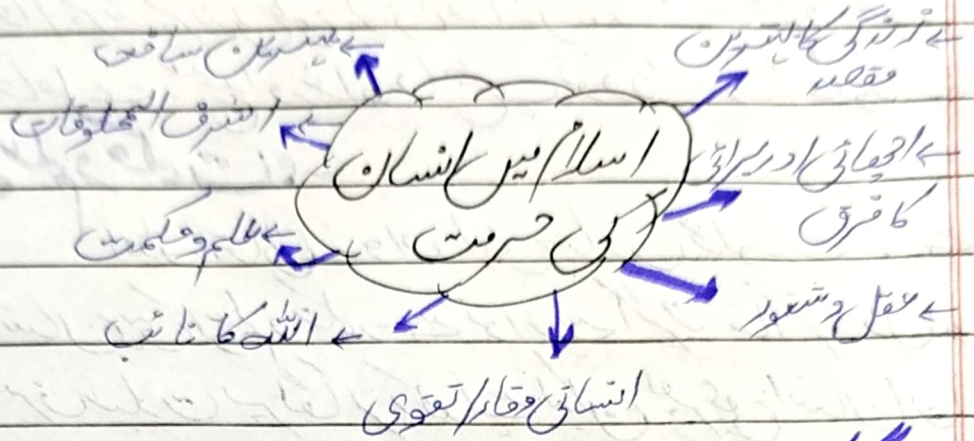 اسلام میں انسان
کی حرمت
← زندگی کا بہترین
مقصد
← اچھائی اور برائی
کا فرق
← عقل و شعور
انسانی وقار/تقوی
← اللہ کا نائب
← علم و حکمت
← اشرف المخلوقات
← بہترین